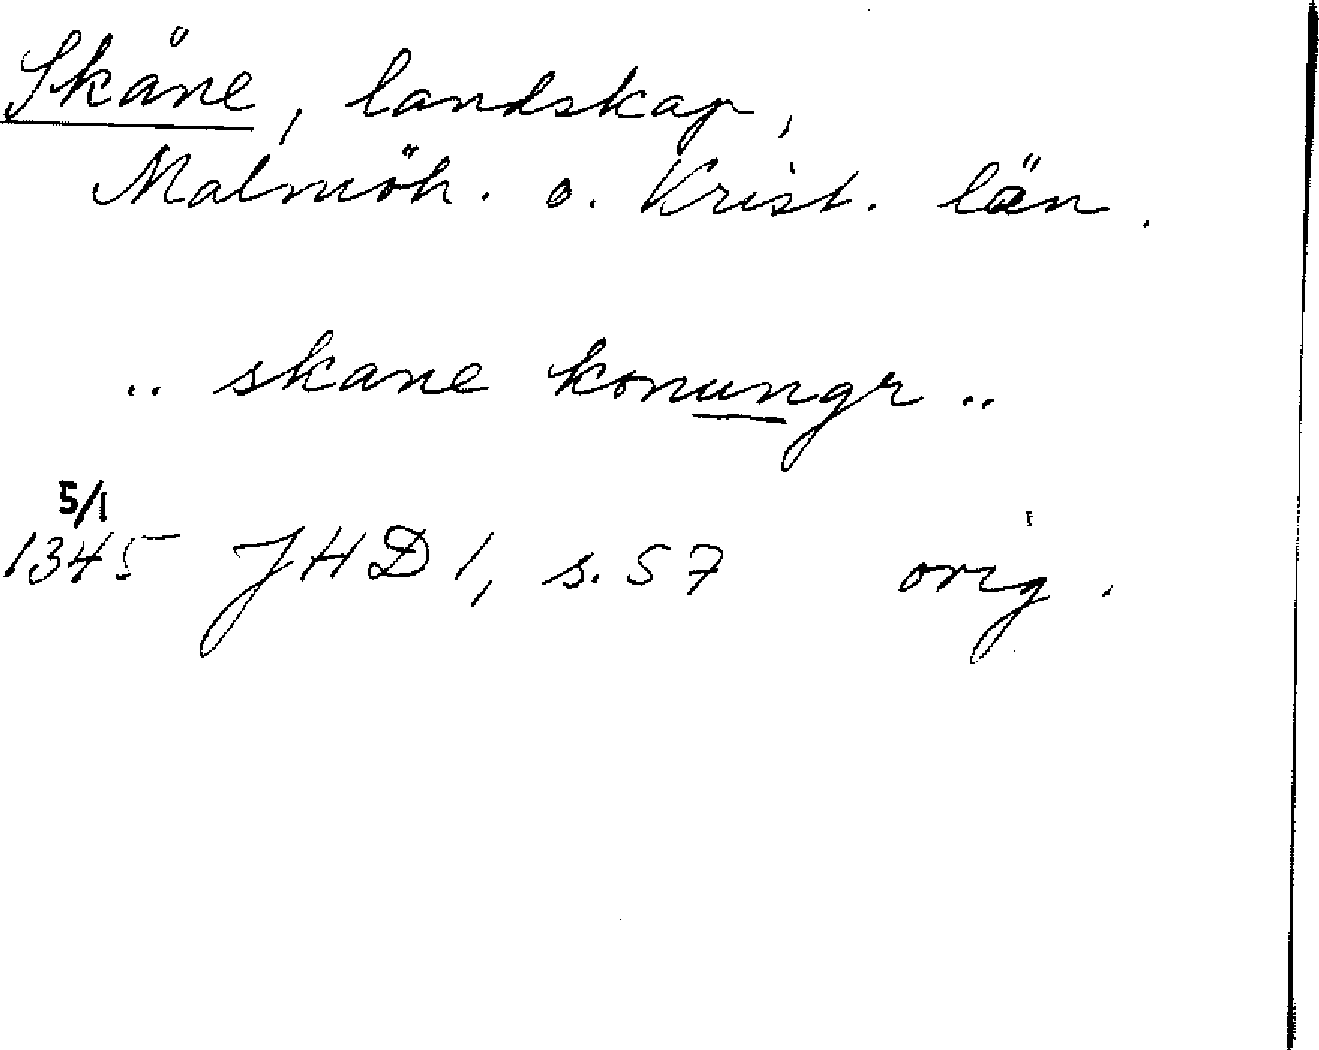 Skåne, landskap,
Malmöh. o. Krist. län.
.. skane konungr ..
5/1
1345 JHD 1, s. 57 orig.